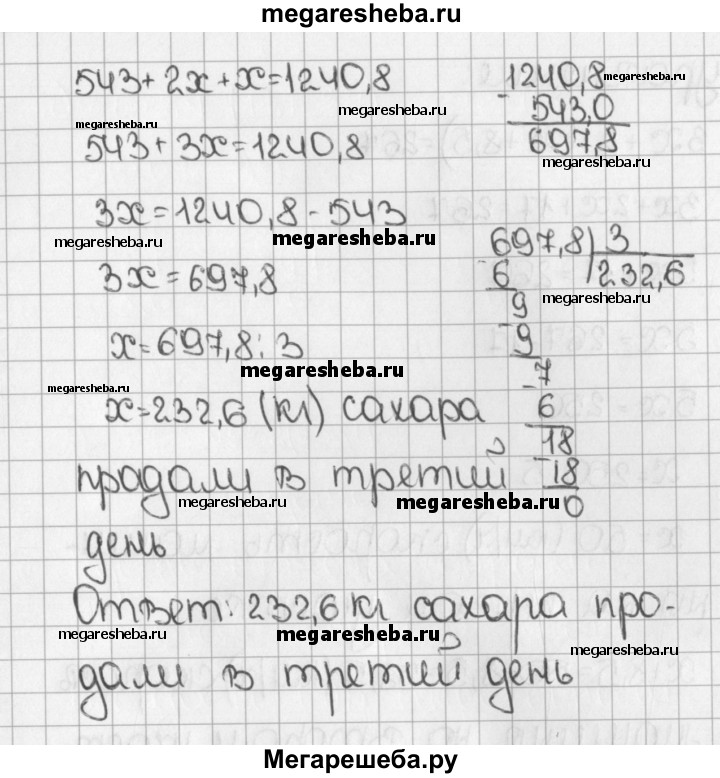 megaresheba.ru
543 + 2x + x = 1240,8
1240,8 megaresheba.ru
megaresheba.ru
- 543,0
megaresheba.ru
697,8
543 + 3x = 1240,8
megaresheba.ru
3x = 1240,8 - 543
megaresheba.ru
megaresheba.ru
697,8 | 3
3x = 697,8
- 6
232,6
9
megaresheba.ru
- 9
x = 697,8 : 3
megaresheba.ru
- 7
megaresheba.ru
x = 232,6 (кг) сахара
6
- 18
продали в третий
18
megaresheba.ru
megaresheba.ru
0
день
Ответ: 232,6 кг сахара про-
megaresheba.ru
megaresheba.ru
megaresheba.ru
дали в третий день
Мегарешеба.ру